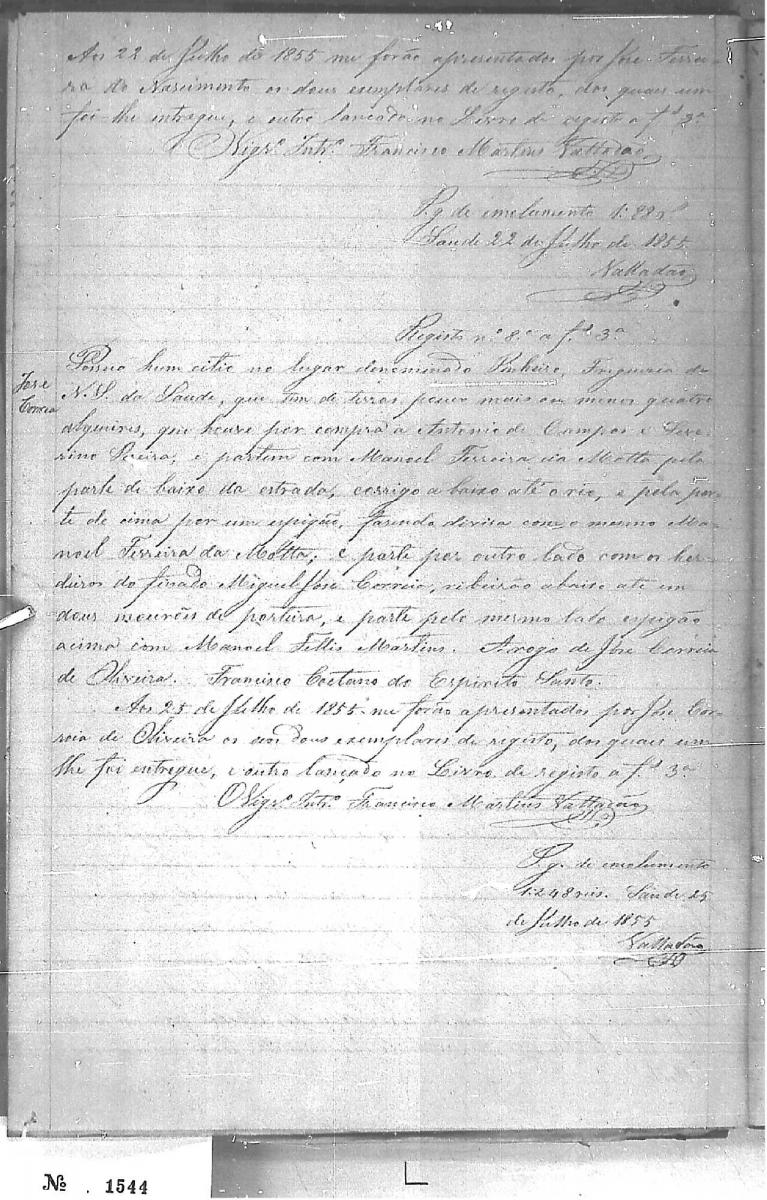 Aos 22 de Julho de 1855 me forão apresentados por José Ferrei-
ra do Nascimento os dous exemplares de registo, dos quais um
foi-lhe entregue, e outro lançado no Livro de registo a fl 3ª
O Vigrº Intrº Francisco Martins Valladão
P.g. de emolumento
Saude 22 de Julho de 1855
Valladão
Registo nº 8º a fl 3ª
José
Correia
Possuo hum citio no lugar denominado Pinheiro, Freguezia de
N. S. da Saude, que tem de terras pouco mais ou menos quatro
alqueires, que houve por compra a Antonio de Campos e Seve-
rino Pereira, e partem com Manoel Ferreira da Motta pela
parte de baixo da estrada, corrigo a baixo até o rio, e pela par-
te de cima por um espigão, fazendo divisa com o mesmo Ma-
noel Ferreira da Motta; e parte por outro lado com os her-
deiros do finado Miguel José Correia, ribeirão abaixo até um
dous mourões de porteira, e parte pelo mesmo lado espigão
acima com Manoel Fellis Martins. Arogo de José Correia
de Oliveira. Francisco Caetano do Espirito Santo.
Aos 25 de Julho de 1855 me forão apresentados por José Cor-
reia de Oliveira os dous exemplares de registo, dos quais um
lhe foi entregue, e outro lançado no Livro de registo a fl 3ª
O Vigrº Intrº Francisco Martins Valladão
P.g. de emolumento
1:248 reis. Saude 25
de Julho de 1855
Valladão
Nº 1544